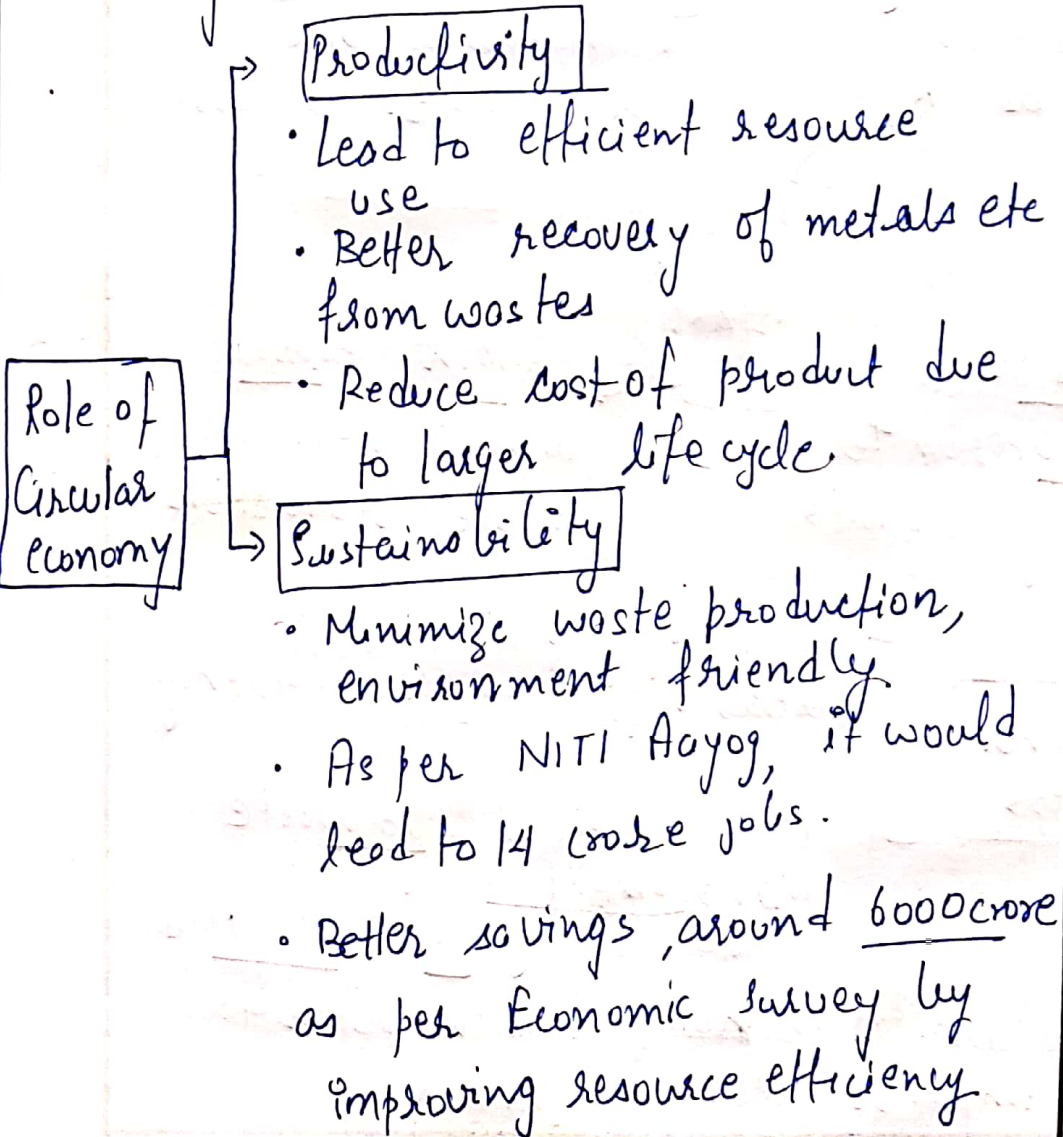 Productivity
• Lead to efficient resource
use
• Better recovery of metals etc
from wastes
• Reduce cost of product due
to larger life cycle
Role of
Circular
economy
Sustainability
• Minimize waste production,
environment friendly
• As per NITI Aayog, it would
lead to 14 crore jobs.
• Better savings, around 6000 crore
as per Economic Survey by
improving resource efficiency